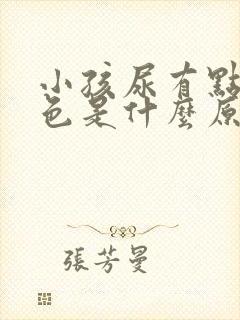 小孩尿有點
色是什麼原
張芳曼